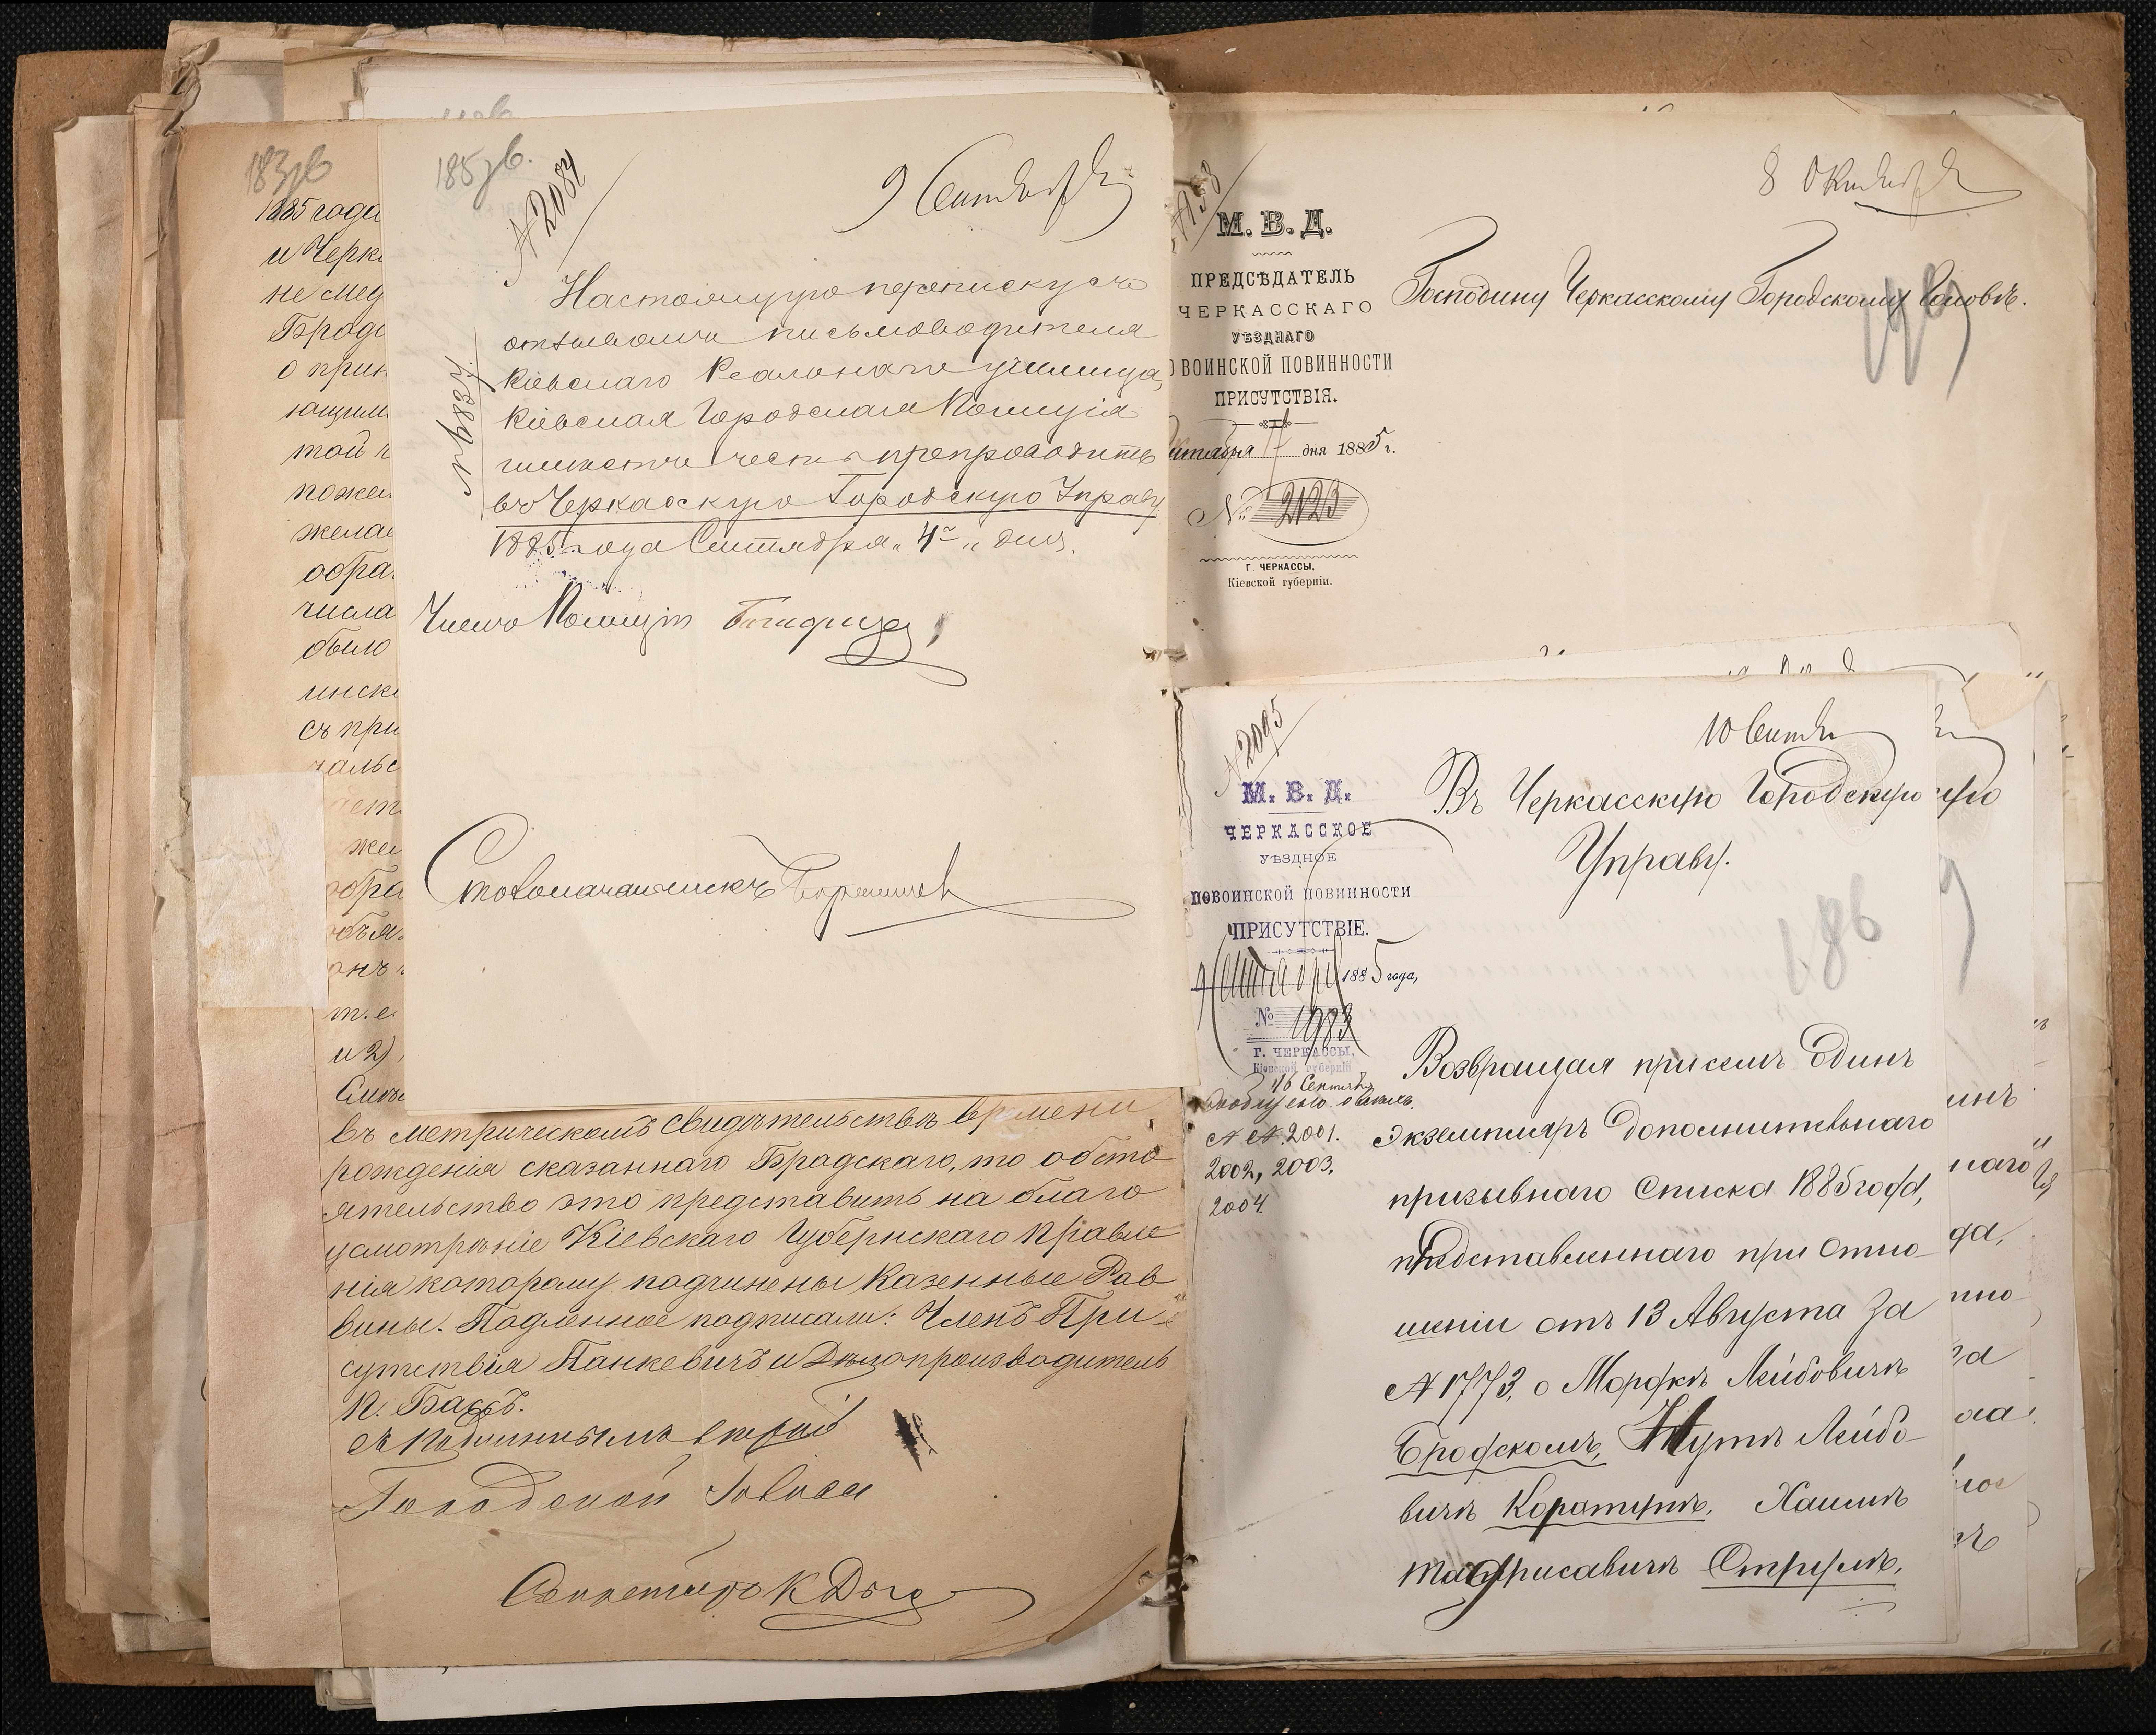 183зв
1885 года
и Черка
не мед
Брод
о прин
ющим
той ч
пожел
желае
обра
числа
было
инск
съ при
чальс
жел
обра
объя
онъ
т. е.
и 2)
въ метрическомъ свидѣтельствѣ времени
рожденія сказаннаго Брадскаго, то обсто
ятельство это представить на благо
усмотрѣніе Кіевскаго Губернскаго Правле
нія которому подчинены Казенные Рав
вины. Подленное подписали: Членъ При
сутствія Панкевичъ и Дѣлопроизводитель
К. Бассъ.
Съ подлиннымъ вѣрно
Городской Голова
Секретарь К
185зв.
№ 2084
9 Сентября
№ 6837
Настоящую переписку съ
отзывомъ письмоводителя
Кіевскаго Реальнаго училища,
Кіевская Городская Полиція
имѣетъ честь препроводить
въ Черкаскую Городскую Управу
1885 года Сентября „4" дня.
Членъ Полиціи
Столоначальникъ
8 Октября
М. В. Д.
ПРЕДСѢДАТЕЛЬ
ЧЕРКАССКАГО
УѢЗДНАГО
О ВОИНСКОЙ ПОВИННОСТИ
ПРИСУТСТВІЯ.
ктября 7 дня 1885 г.
№ 2123
Г. ЧЕРКАССЫ,
Кіевской губерніи.
Господину Черкасскому Городскому Головѣ.
№ 2095
10 Сентя
М. В. Д.
ЧЕРКАССКОЕ
УѢЗДНОЕ
ПО ВОИНСКОЙ ПОВИННОСТИ
ПРИСУТСТВІЕ.
9 Сентября 1885 года,
№ 1983
Г. ЧЕРКАССЫ,
Кіевской губерніи
16 Сентября
№ №. 2001.
2002, 2003,
2004
Въ Черкасскую Городскую
Управу.
186
Возвращая присемъ одинъ
экземпляръ дополнительнаго
призывнаго списка 1885 года,
представленнаго при отно-
шеніи отъ 13 Августа за
№ 1773, о Мордкѣ Лейбовичѣ
Бродскомъ, Нутѣ Лейбо-
вичѣ Коротунѣ, Хаимѣ
Струлѣ,
инъ
наго
да,
тно
за